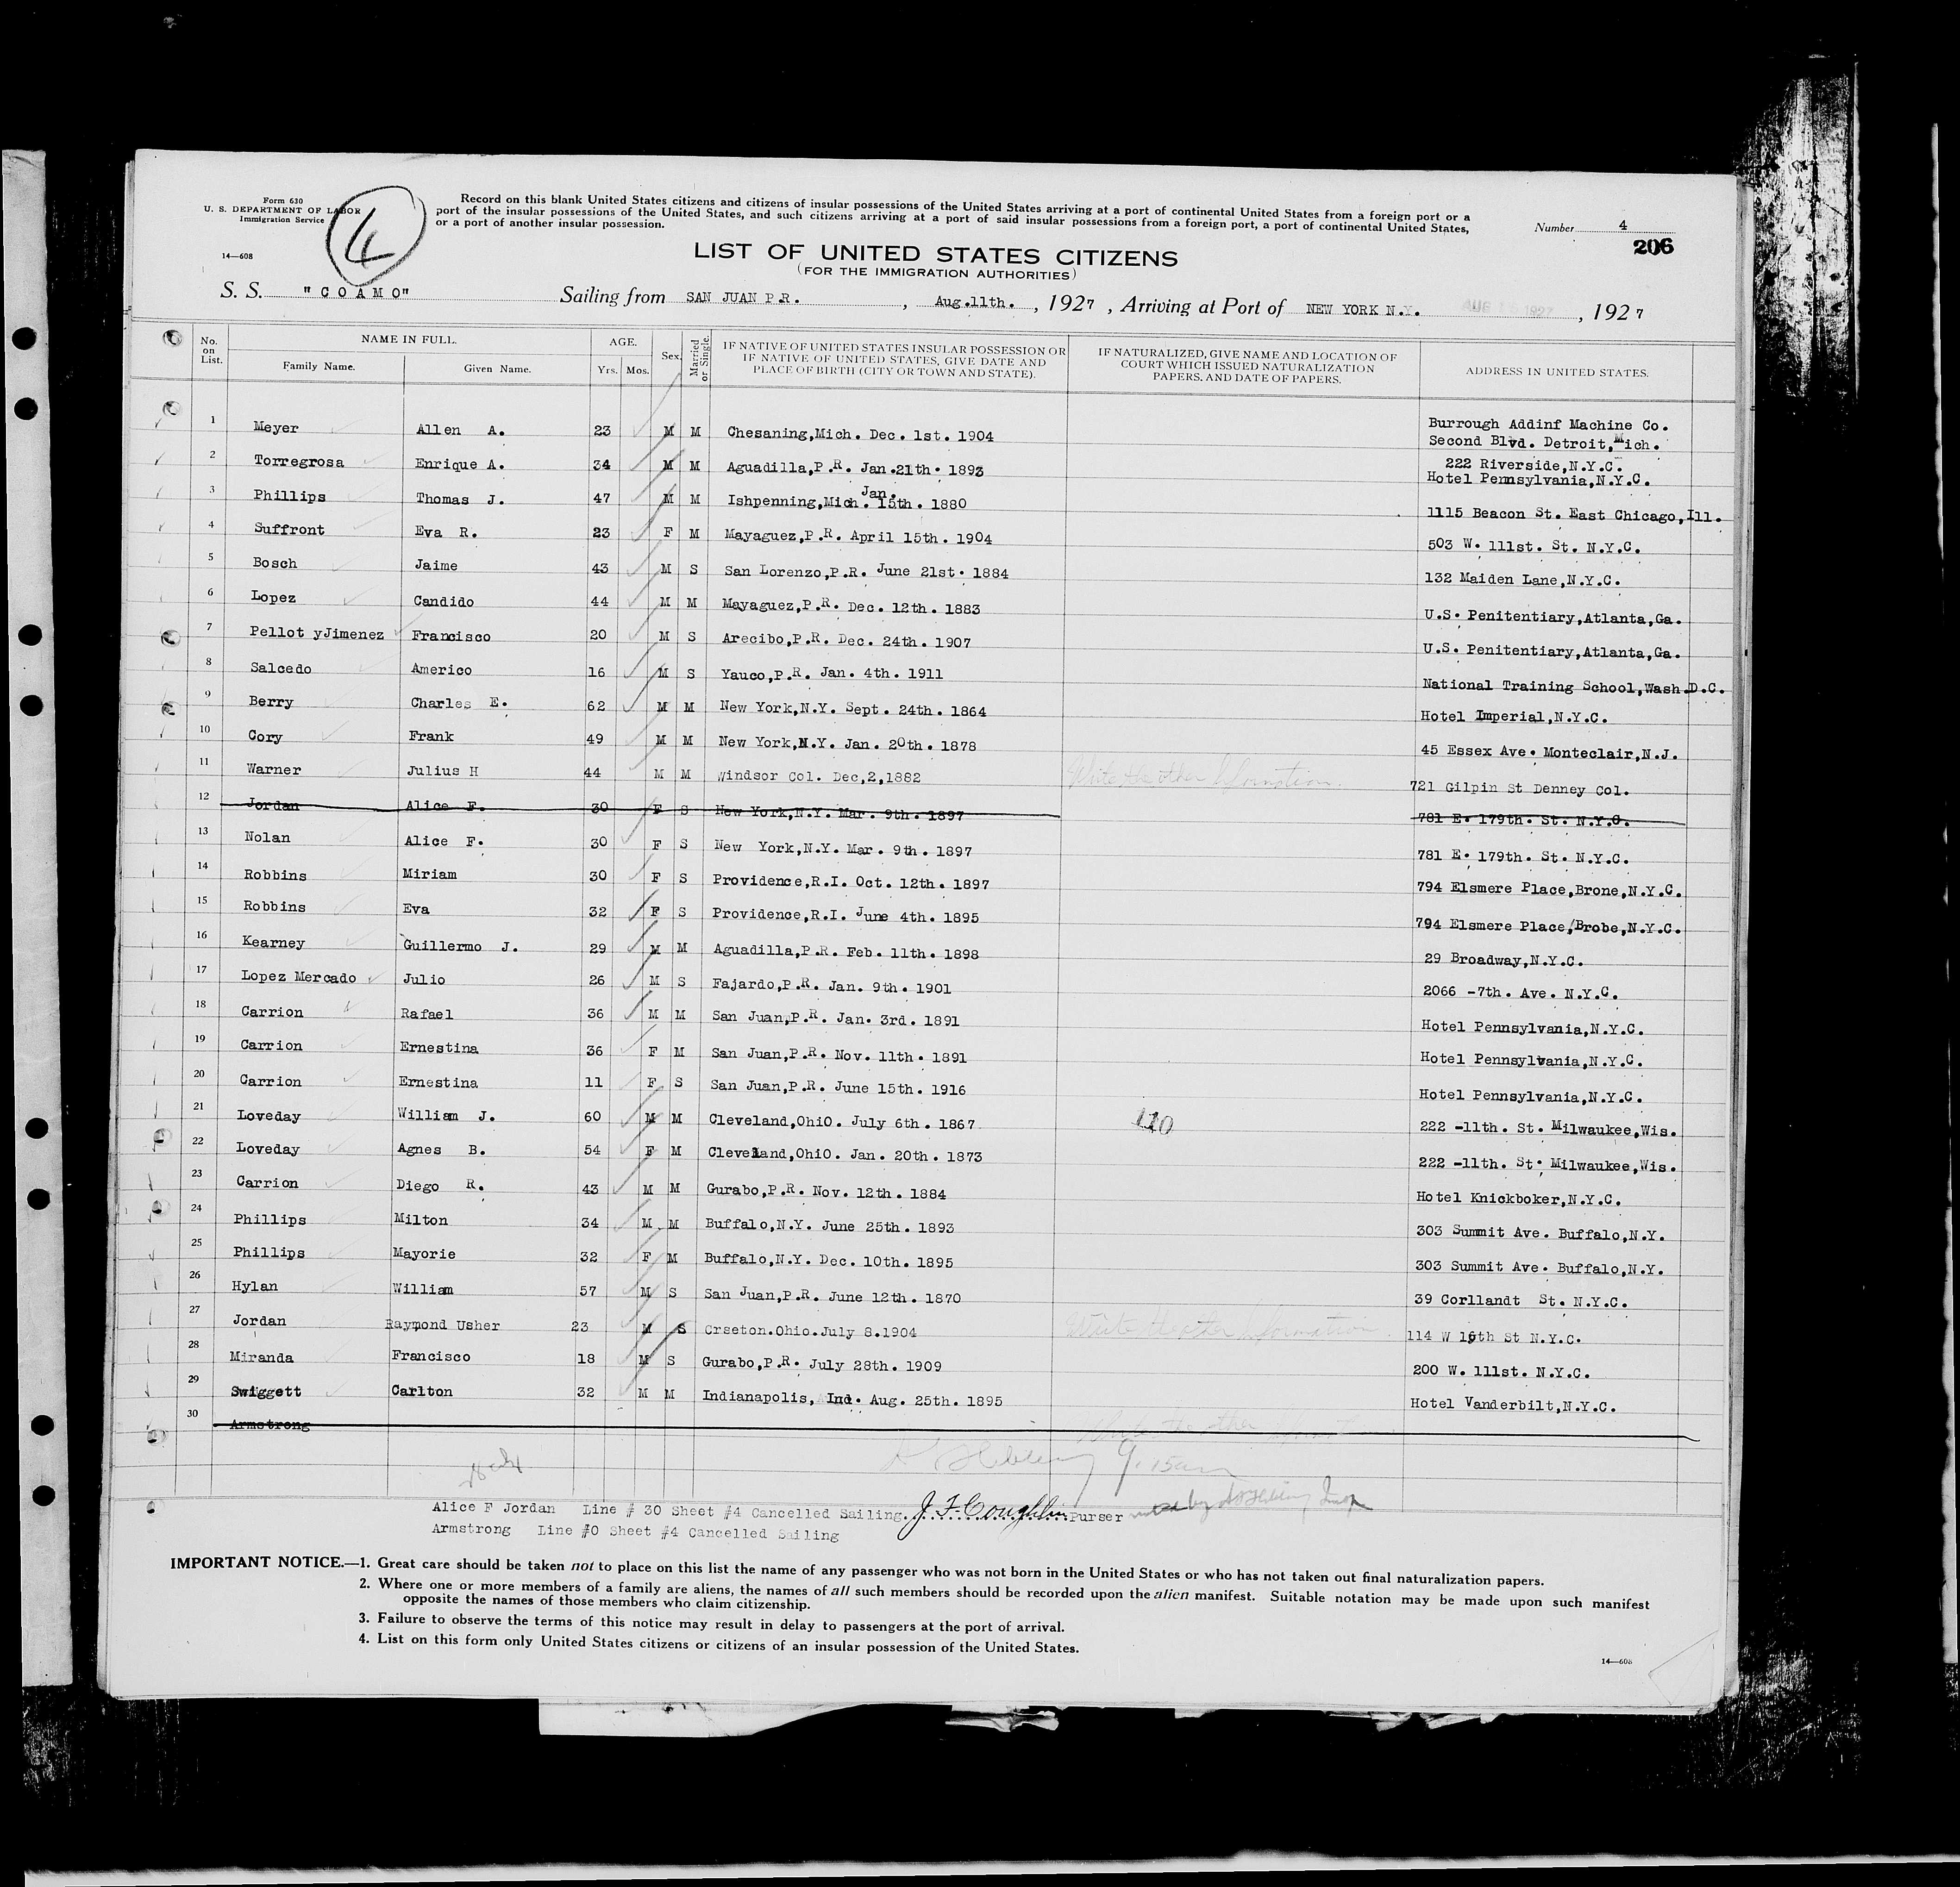 Form 630
U. S. DEPARTMENT OF LABOR
Immigration Service
14—608
4
Record on this blank United States citizens and citizens of insular possessions of the United States arriving at a port of continental United States from a foreign port or a
port of the insular possessions of the United States, and such citizens arriving at a port of said insular possessions from a foreign port, a port of continental United States,
or a port of another insular possession.
Number 4
206
LIST OF UNITED STATES CITIZENS
(FOR THE IMMIGRATION AUTHORITIES)
S. S. "COAMO" Sailing from SAN JUAN P.R. , Aug.11th. , 1927 , Arriving at Port of NEW YORK N.Y. AUG 1927 , 1927
No. on List. NAME IN FULL. Family Name. Given Name. AGE. Yrs. Mos. Sex. Married or Single. IF NATIVE OF UNITED STATES INSULAR POSSESSION OR IF NATIVE OF UNITED STATES, GIVE DATE AND PLACE OF BIRTH (CITY OR TOWN AND STATE). IF NATURALIZED, GIVE NAME AND LOCATION OF COURT WHICH ISSUED NATURALIZATION PAPERS, AND DATE OF PAPERS. ADDRESS IN UNITED STATES.
1 Meyer Allen A. 23 M M Chesaning,Mich. Dec. 1st. 1904 Burrough Addinf Machine Co. Second Blvd. Detroit,Mich.
2 Torregrosa Enrique A. 34 M M Aguadilla,P.R. Jan.21th. 1893 222 Riverside,N.Y.C.
3 Phillips Thomas J. 47 M M Ishpenning,Mich. Jan. 15th. 1880 Hotel Pennsylvania,N.Y.C.
4 Suffront Eva R. 23 F M Mayaguez,P.R. April 15th. 1904 1115 Beacon St. East Chicago,Ill.
5 Bosch Jaime 43 M S San Lorenzo,P.R. June 21st. 1884 503 W. 111st. St. N.Y.C.
6 Lopez Candido 44 M M Mayaguez,P.R. Dec. 12th. 1883 132 Maiden Lane,N.Y.C.
7 Pellot yJimenez Francisco 20 M S Arecibo,P.R. Dec. 24th. 1907 U.S. Penitentiary,Atlanta,Ga.
8 Salcedo Americo 16 M S Yauco,P.R. Jan. 4th. 1911 U.S. Penitentiary,Atlanta,Ga.
9 Berry Charles E. 62 M M New York,N.Y. Sept. 24th. 1864 National Training School,Wash.D.C.
Hotel Imperial,N.Y.C.
10 Cory Frank 49 M M New York,N.Y. Jan. 20th. 1878 45 Essex Ave. Monteclair,N.J.
11 Warner Julius H 44 M M Windsor Col. Dec,2,1882 White the other Information. 721 Gilpin St Denney Col.
12 Jordan Alice F. 30 F S New York,N.Y. Mar. 9th. 1897 781 E. 179th. St. N.Y.C.
13 Nolan Alice F. 30 F S New York,N.Y. Mar. 9th. 1897 781 E. 179th. St. N.Y.C.
14 Robbins Miriam 30 F S Providence,R.I. Oct. 12th. 1897 794 Elsmere Place,Brone,N.Y.C.
15 Robbins Eva 32 F S Providence,R.I. June 4th. 1895 794 Elsmere Place/Brobe,N.Y.C.
16 Kearney Guillermo J. 29 M M Aguadilla,P.R. Feb. 11th. 1898 29 Broadway,N.Y.C.
17 Lopez Mercado Julio 26 M S Fajardo,P.R. Jan. 9th. 1901 2066 -7th. Ave. N.Y.C.
18 Carrion Rafael 36 M M San Juan,P.R. Jan. 3rd. 1891 Hotel Pennsylvania,N.Y.C.
19 Carrion Ernestina 36 F M San Juan,P.R. Nov. 11th. 1891 Hotel Pennsylvania,N.Y.C.
20 Carrion Ernestina 11 F S San Juan,P.R. June 15th. 1916 Hotel Pennsylvania,N.Y.C.
21 Loveday William J. 60 M M Cleveland,OhiO. July 6th. 1867 110 222 -11th. St. Milwaukee,Wis.
22 Loveday Agnes B. 54 F M Cleveland,OhiO. Jan. 20th. 1873 222 -11th. St. Milwaukee,Wis.
23 Carrion Diego R. 43 M M Gurabo,P.R. Nov. 12th. 1884 Hotel Knickboker,N.Y.C.
24 Phillips Milton 34 M M Buffalo,N.Y. June 25th. 1893 303 Summit Ave. Buffalo,N.Y.
25 Phillips Mayorie 32 F M Buffalo,N.Y. Dec. 10th. 1895 303 Summit Ave. Buffalo,N.Y.
26 Hylan William 57 M S San Juan,P.R. June 12th. 1870 39 Corllandt St. N.Y.C.
27 Jordan Raymond Usher 23 M S Crseton.Ohio.July 8.1904 White the other Information 114 W 16th St N.Y.C.
28 Miranda Francisco 18 M S Gurabo,P.R. July 28th. 1909 200 W. 111st. N.Y.C.
29 Swiggett Carlton 32 M M Indianapolis, Ind. Aug. 25th. 1895 Hotel Vanderbilt,N.Y.C.
30 Armstrong
9.15am
Alice F Jordan Line # 30 Sheet #4 Cancelled Sailing. J. F. Coughlin Purser
Armstrong Line #0 Sheet #4 Cancelled Sailing
IMPORTANT NOTICE.—1. Great care should be taken not to place on this list the name of any passenger who was not born in the United States or who has not taken out final naturalization papers.
2. Where one or more members of a family are aliens, the names of all such members should be recorded upon the alien manifest. Suitable notation may be made upon such manifest
opposite the names of those members who claim citizenship.
3. Failure to observe the terms of this notice may result in delay to passengers at the port of arrival.
4. List on this form only United States citizens or citizens of an insular possession of the United States.
14—608